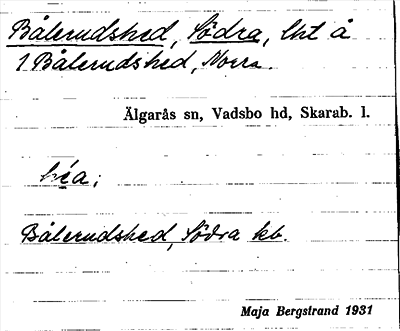 Bålerudshed, Södra, lht å
1 Bålerudshed, Norra.
Älgarås sn, Vadsbo hd, Skarab. l.
héa;
Bålerudshed, Södra kb.
Maja Bergstrand 1931